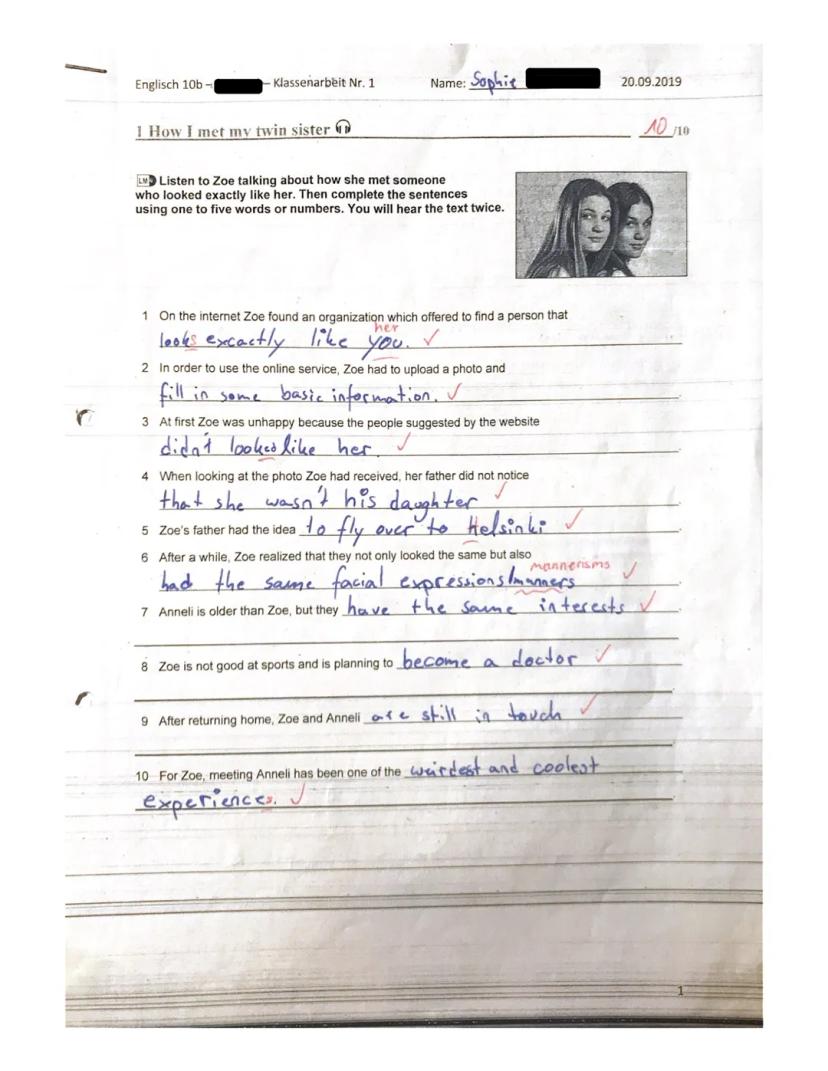 Englisch 10b – – Klassenarbeit Nr. 1 Name: Sophie 20.09.2019
1 How I met my twin sister 10 /10
LM Listen to Zoe talking about how she met someone
who looked exactly like her. Then complete the sentences
using one to five words or numbers. You will hear the text twice.
1 On the internet Zoe found an organization which offered to find a person that
her
looks excactly like you. ✓
2 In order to use the online service, Zoe had to upload a photo and
fill in some basic information. ✓
3 At first Zoe was unhappy because the people suggested by the website
didn't looked like her ✓.
4 When looking at the photo Zoe had received, her father did not notice
that she wasn't his daughter ✓.
5 Zoe's father had the idea to fly over to Helsinki ✓.
6 After a while, Zoe realized that they not only looked the same but also
mannerisms
had the same facial expressions/manners ✓.
7 Anneli is older than Zoe, but they have the same interests ✓.
8 Zoe is not good at sports and is planning to become a doctor ✓
9 After returning home, Zoe and Anneli are still in touch ✓
10 For Zoe, meeting Anneli has been one of the weirdest and coolest
experiences. ✓
1